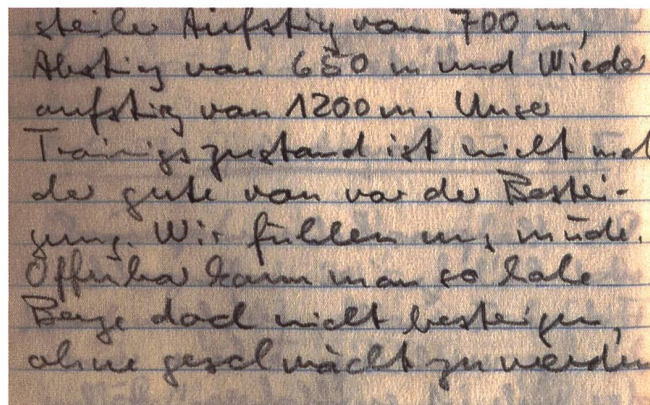 steiler Aufstieg von 700 m,
Abstieg von 650 m und Wieder
aufstieg von 1200 m. Unser
Trainingszustand ist nicht meh
der gute von vor der Bestei-
gung. Wir fühlen uns müde.
Offenbar kann man so hohe
Berge doch nicht besteigen,
ohne geschwächt zu werden